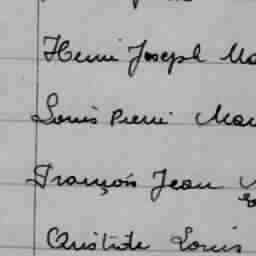 Henri Joseph Ma
Louis Pierre Mar
François Jean
Aristide Louis